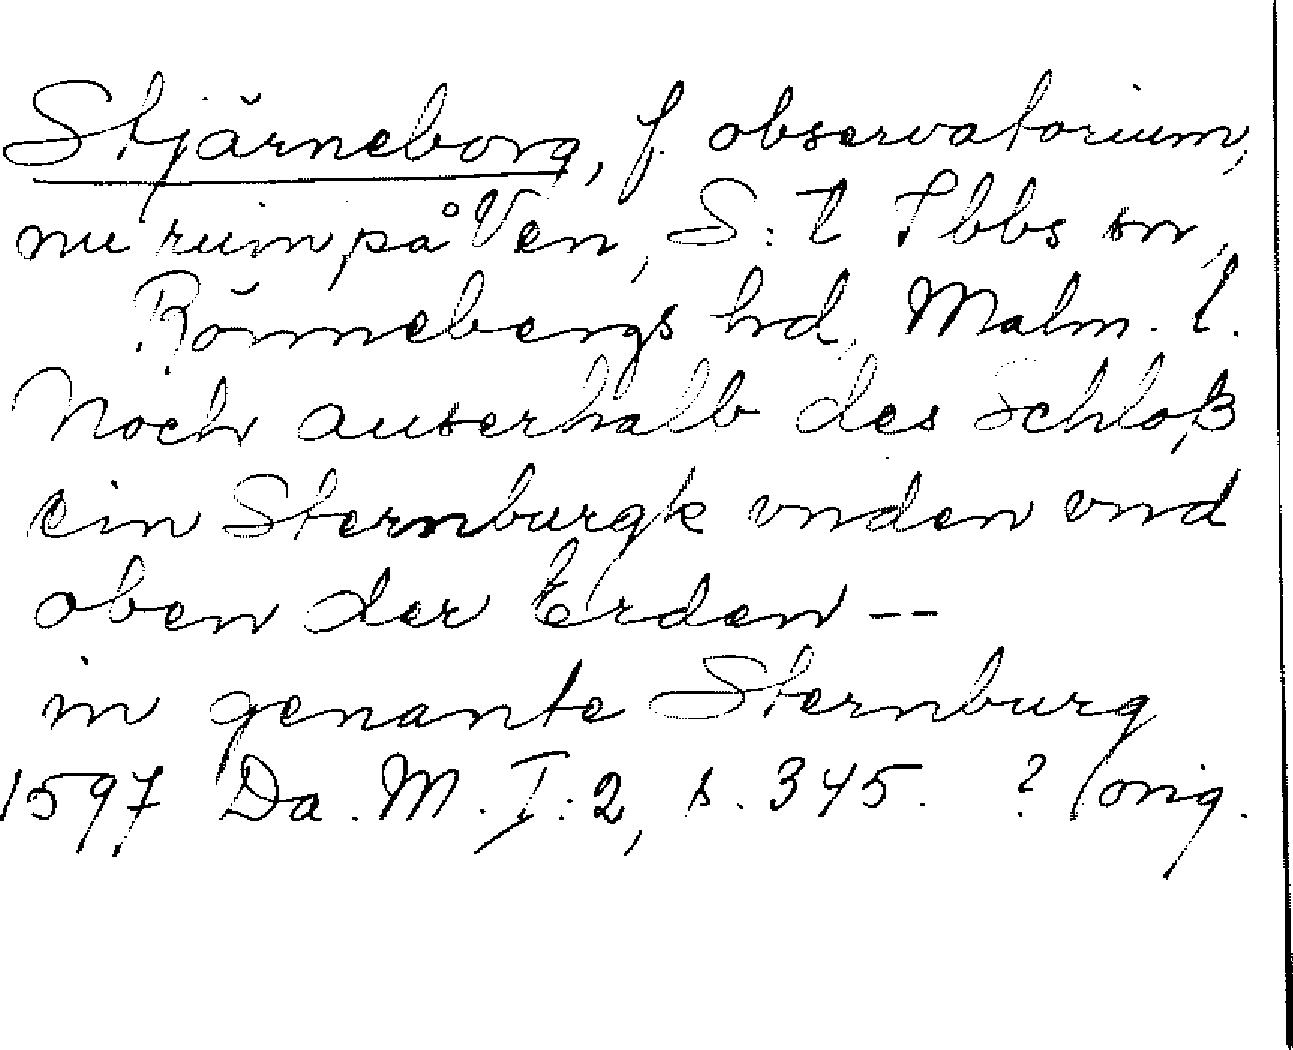 Stjärneborg, f. observatorium,
nu ruin på Ven, S:t Ibbs sn,
Rönnebergs hd, Malm. l.
Noch auserhalb des Schloß
ein Sternburgk vnden vnd
oben der Erden --
in genante Sternburg
1597 Da. M. I:2, s. 345. ? orig.